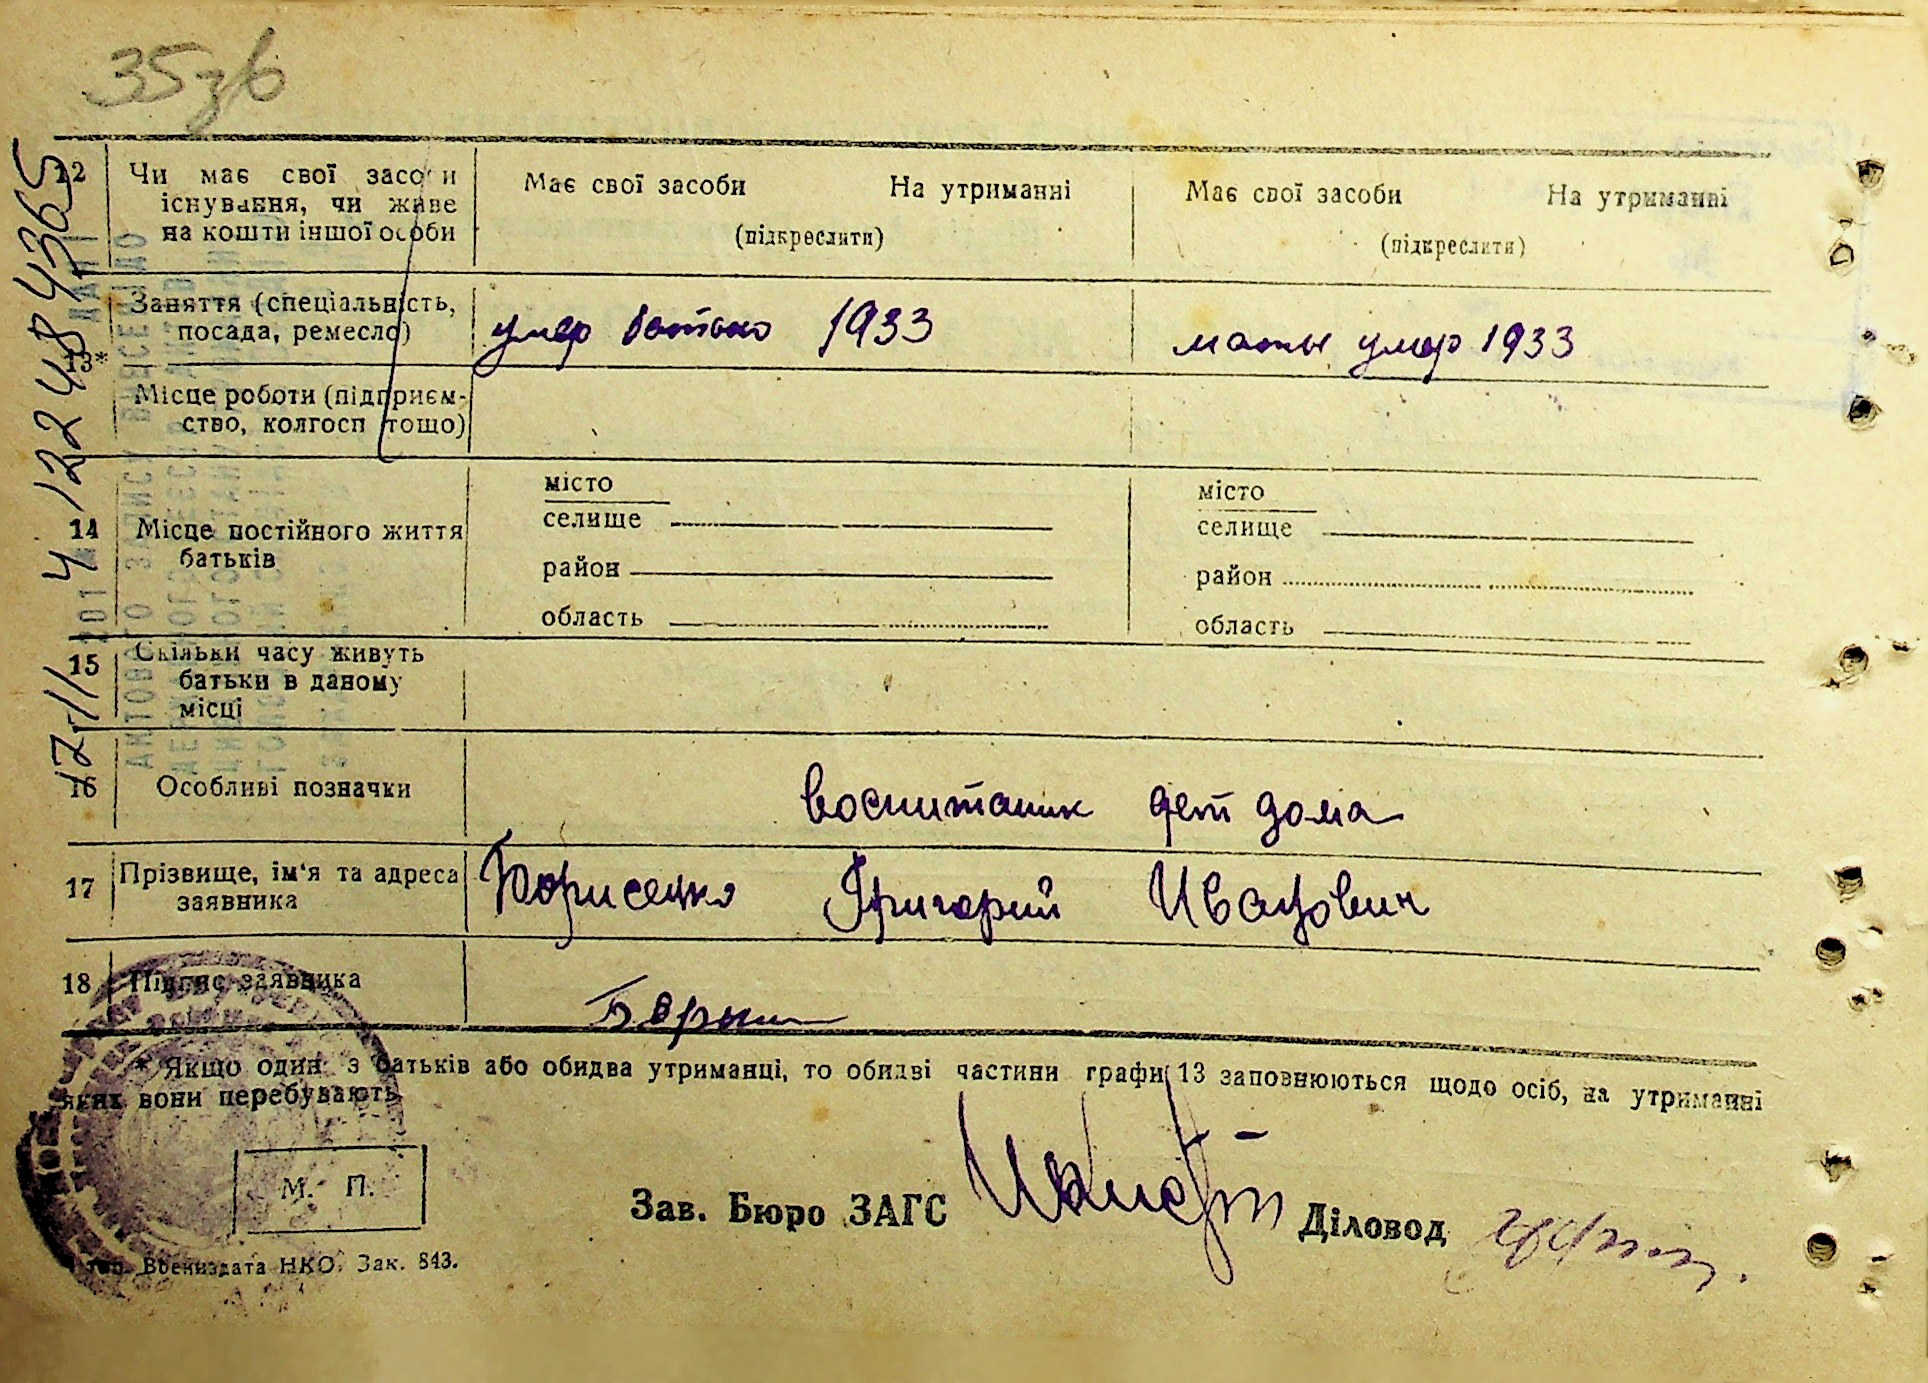 35зв
12 Чи має свої засоби Має свої засоби На утриманні Має свої засоби На утриманні
існування, чи живе
на кошти іншої особи (підкреслити) (підкреслити)
Заняття (спеціальність,
посада, ремесло) умер батько 1933 маты умер 1933
13*
Місце роботи (підприєм-
ство, колгосп тощо)
місто місто
14 Місце постійного життя селище селище
батьків район район
область область
15 Скільки часу живуть
батьки в даному
місці
16 Особливі позначки воспитаник дет дома
17 Прізвище, ім'я та адреса
заявника Борисецко Григорий Иванович
18 Підпис заявника
* Якщо один з батьків або обидва утриманці, то обидві частини графи 13 заповнюються щодо осіб, на утриманні
яких вони перебувають.
М. П.
Зав. Бюро ЗАГС Діловод
тип. Воениздата НКО. Зак. 843.
12 11 201 4 122484365